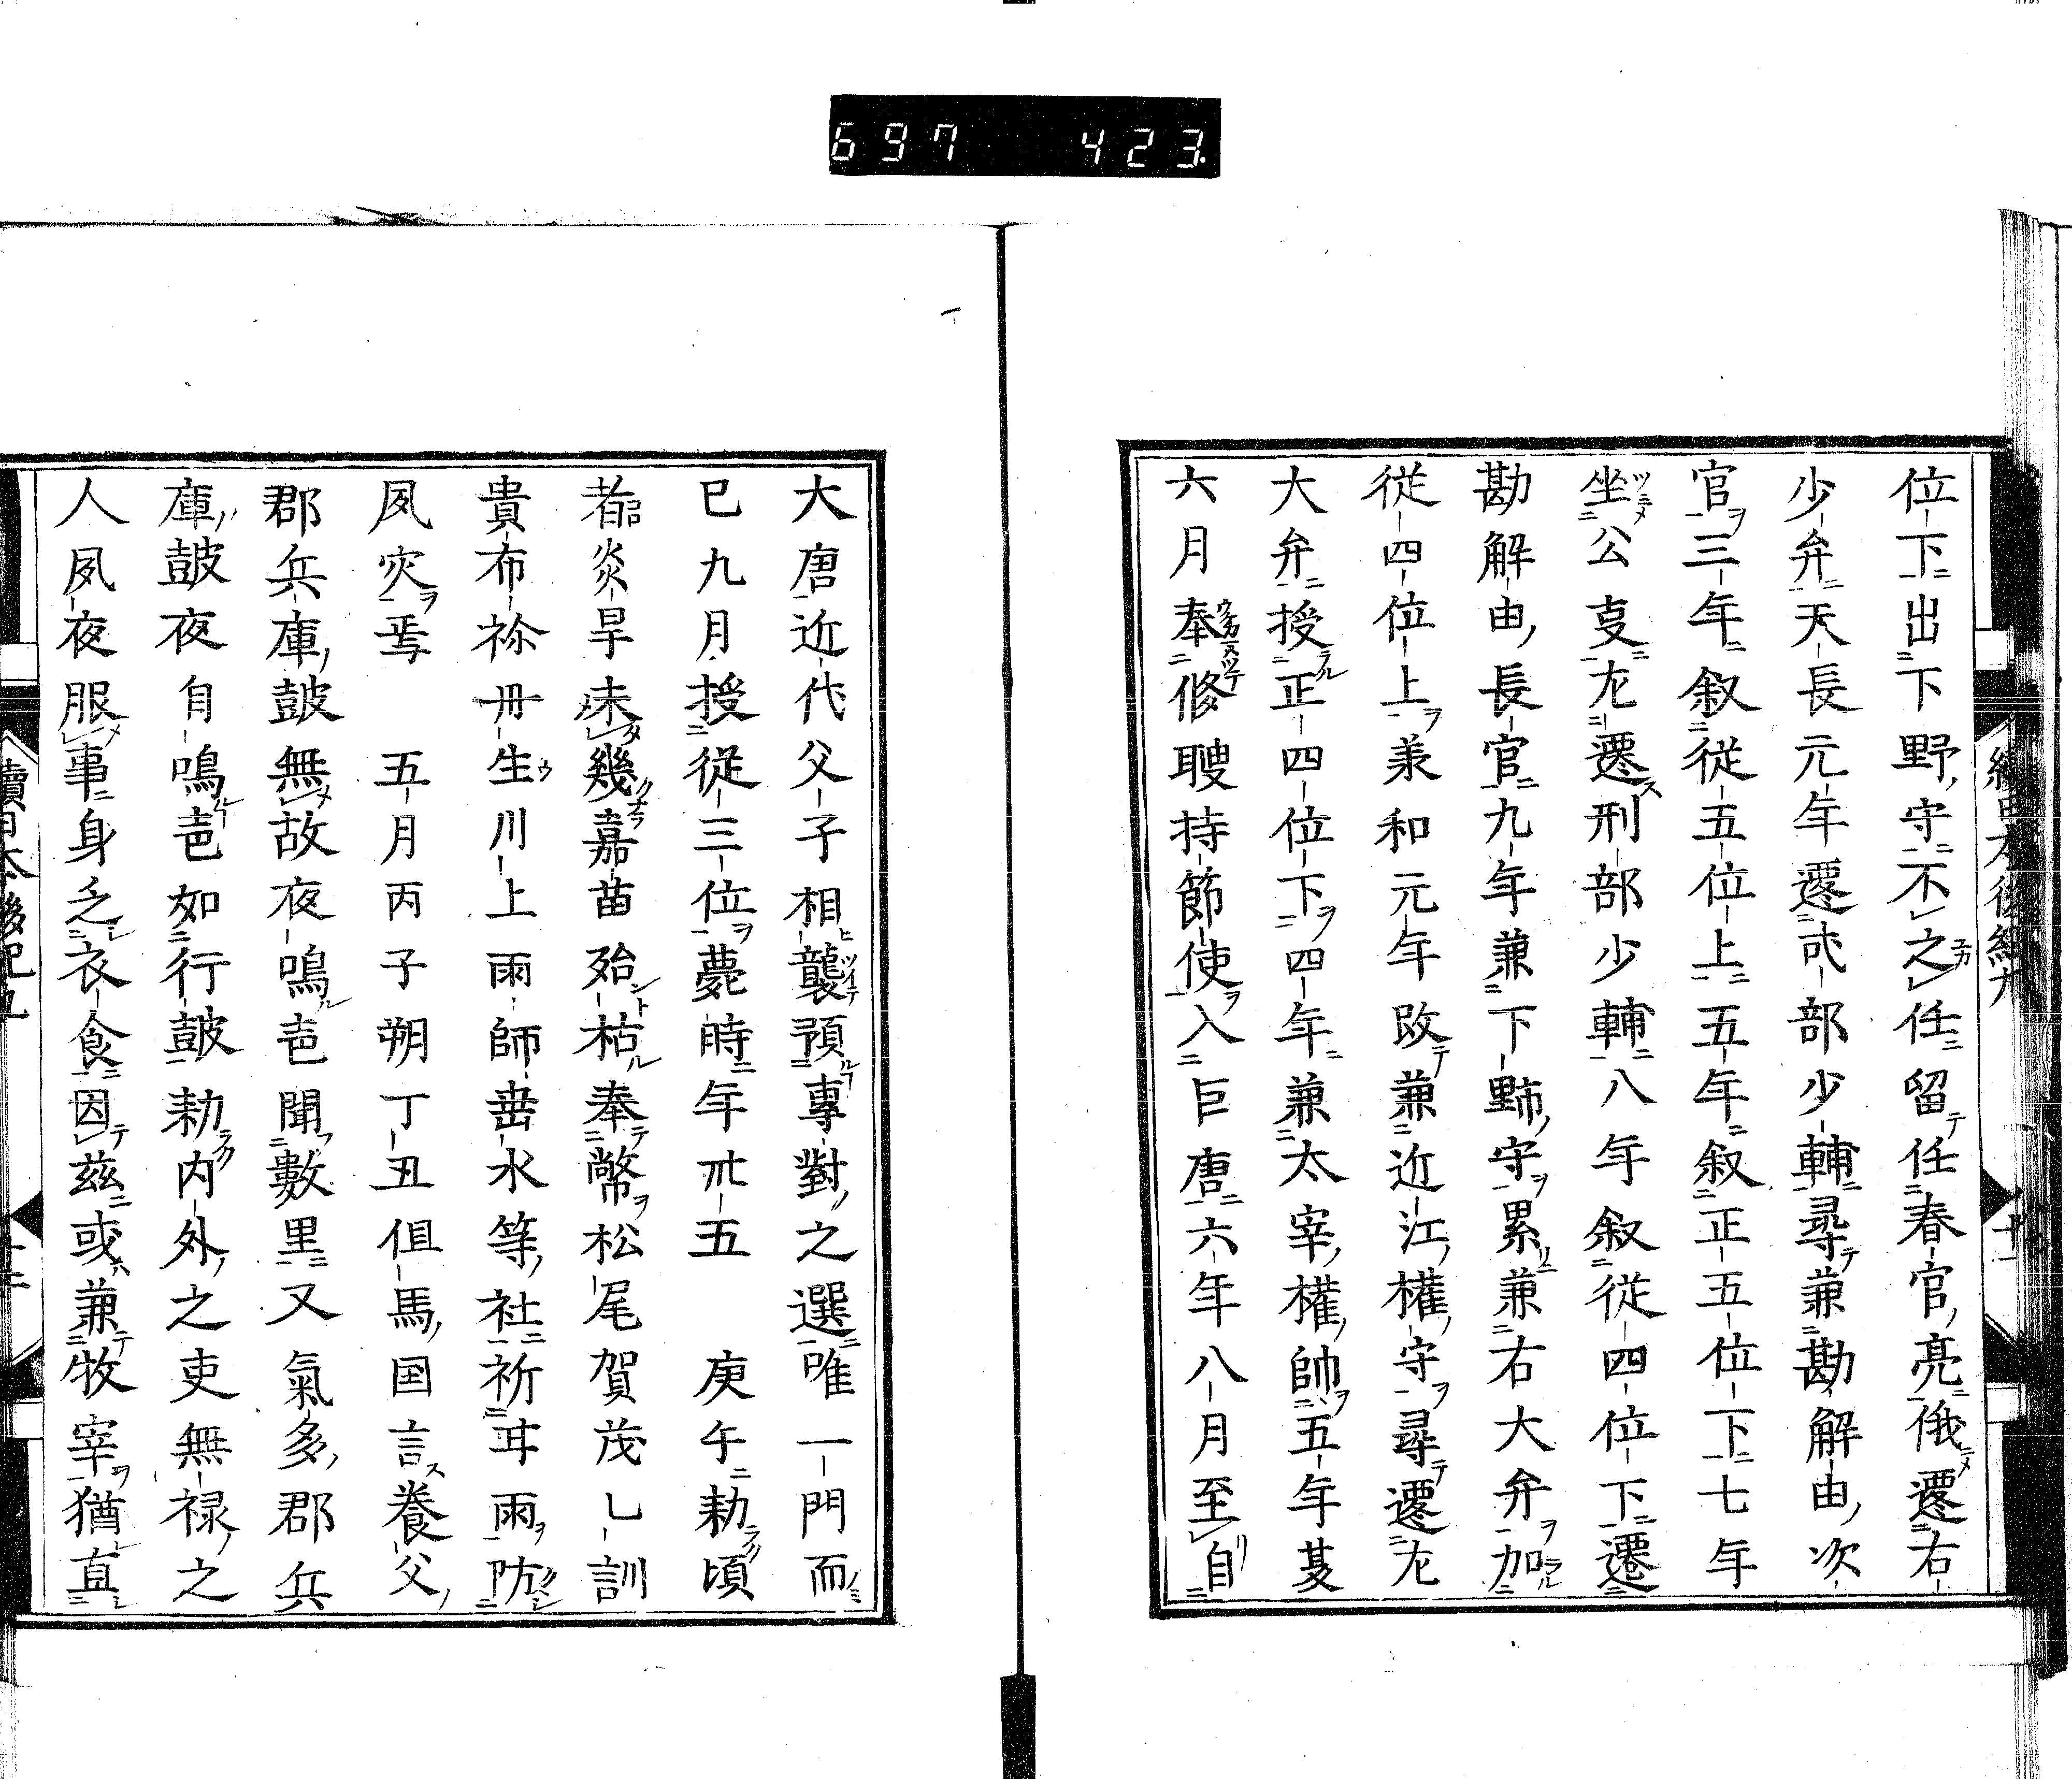 697 423
續日本後紀九
位下出下野守不之任留任春官亮俄遷右
少弁天長元年遷式部少輔尋兼勘解由次
官三年叙従五位上五年叙正五位下七年
坐公㕝左遷刑部少輔八年叙従四位下遷
勘解由長官九年兼下野守累兼右大弁加
従四位上兼和元年改兼近江權守尋遷左
大弁授正四位下四年兼太宰權帥五年夏
六月奉修聘持節使入巨唐六年八月至自
大唐近代父子相襲預專對之選唯一門而
已九月授従三位薨時年卌五 庚午勑頃
者炎旱未幾嘉苗殆枯奉幣松尾賀茂乙訓
貴布祢丹生川上雨師垂水等社祈甘雨防
風灾焉 五月丙子朔丁丑但馬国言養父
郡兵庫鼓無故夜鳴声聞數里又氣多郡兵
庫鼓夜自鳴声如行鼓勑内外之吏無禄之
人夙夜服事身乏衣食因茲或兼牧宰猶直
續日本後紀九